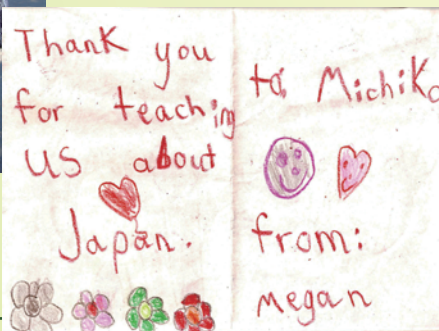 Thank you
for teaching
us about
Japan.
to Michiko
from:
megan